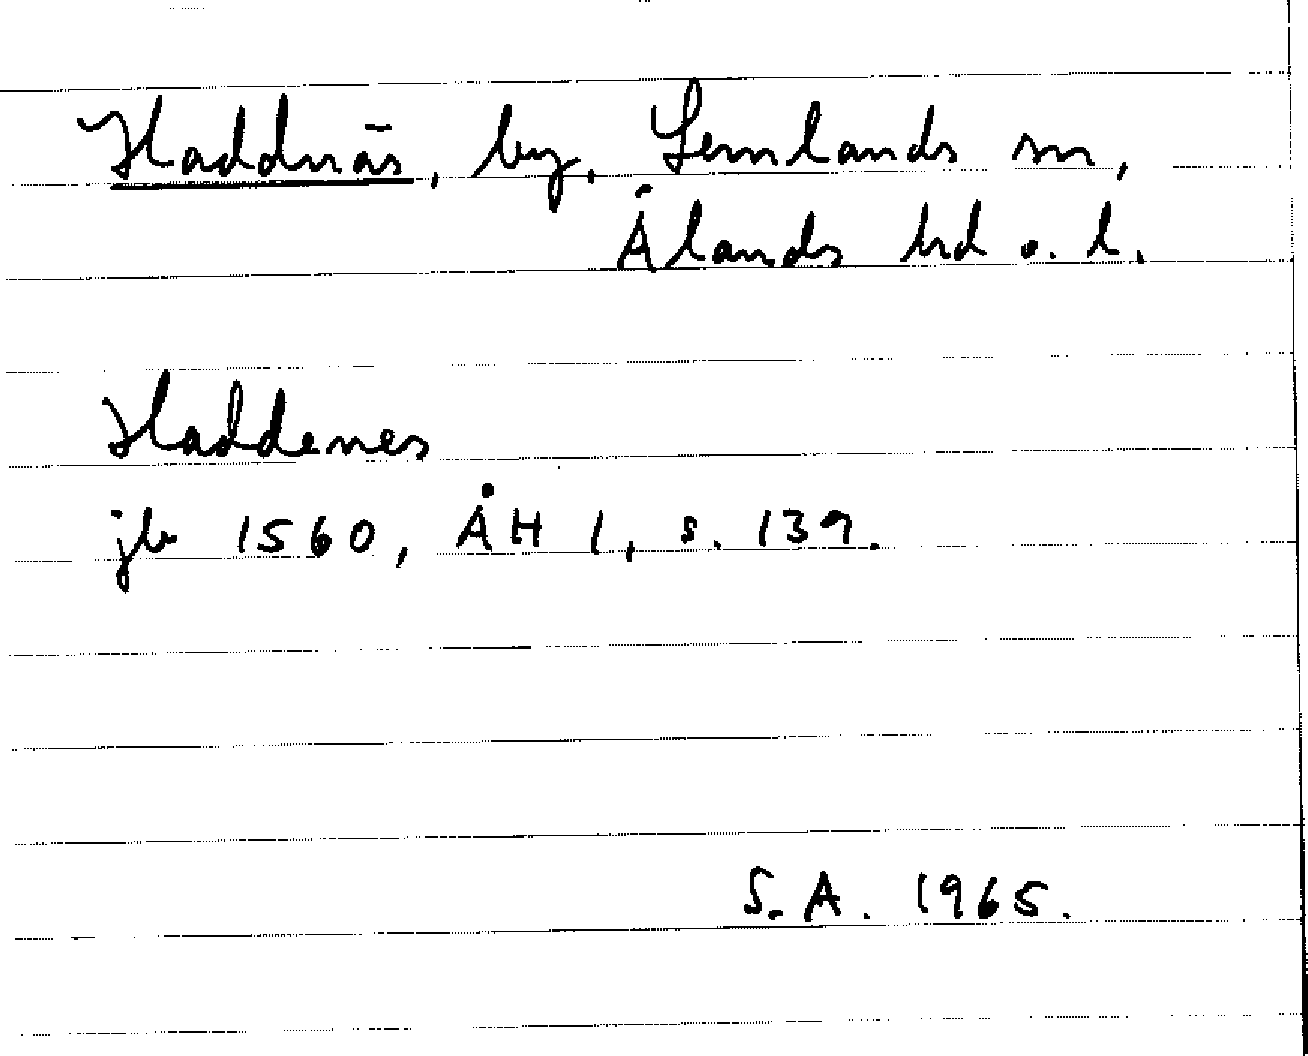 Haddnäs, by, Lemlands sn,
Ålands hd o. l.
Haddenes
jb 1560, ÅH 1, s. 139.
S.A. 1965.